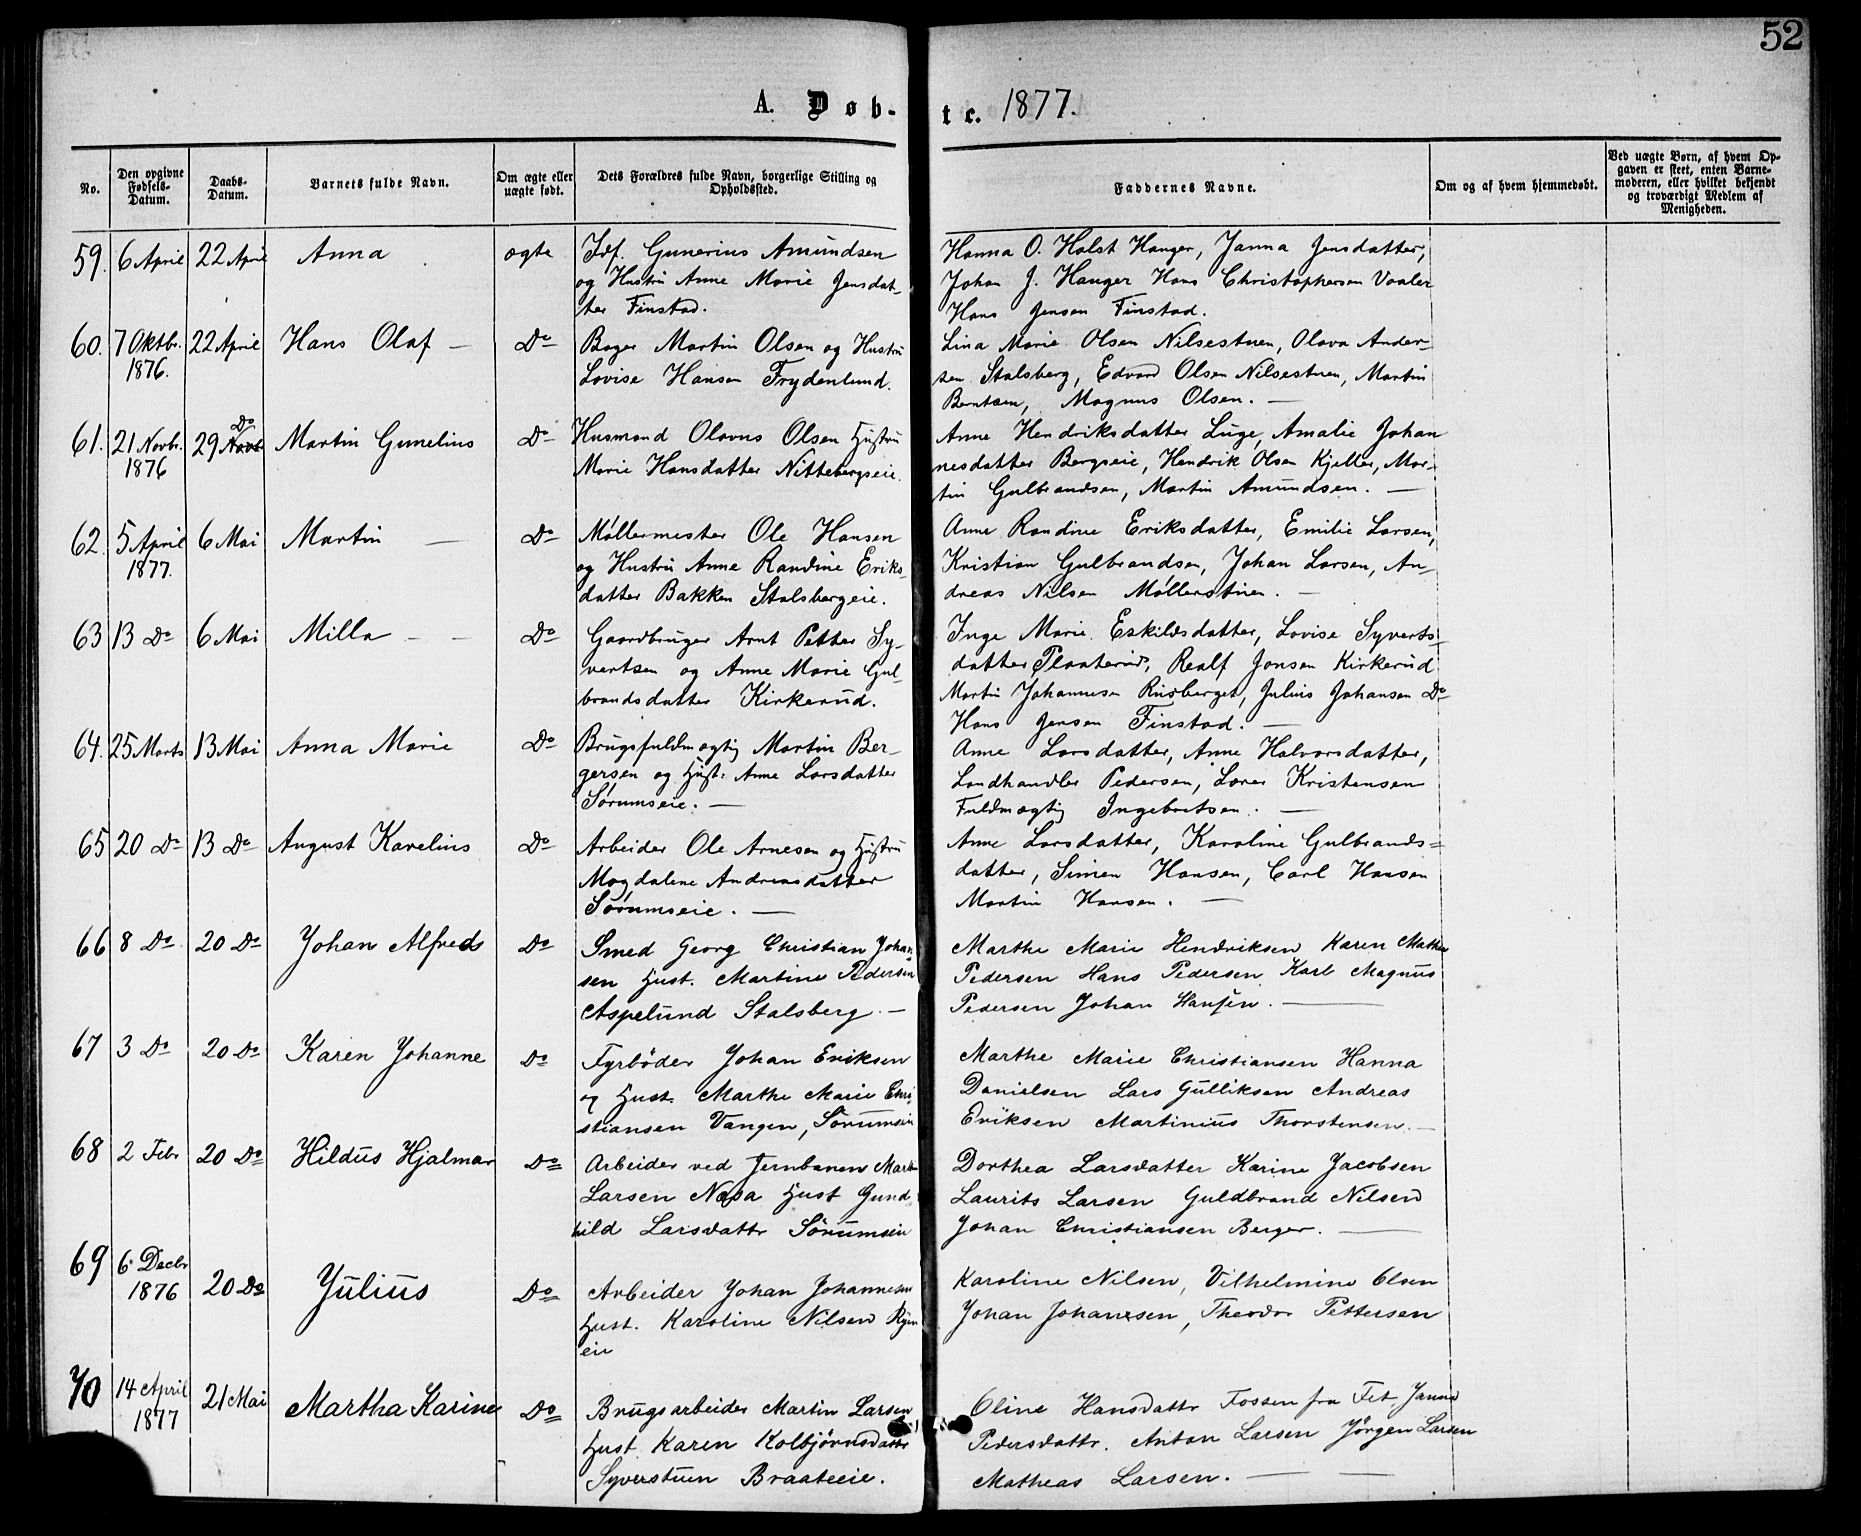 52
A. Døb-
te. 1877.
No.
Den opgivne Fødsels-Datum.
Daabs-Datum.
Barnets fulde Navn.
Om ægte eller uægte født.
Dets Forældres fulde Navn, borgerlige Stilling og Opholdssted.
Faddernes Navne.
Om og af hvem hjemmedøbt.
Ved uægte Børn, af hvem Opgaven er skeet, enten Barnemoderen, eller hvilket bekjendt og troværdigt Medlem af Menigheden.
59. 6 April 22 April Anna ægte Idf. Gunerius Amundsen
og Hustru Anne Marie Jensdat-
ter Finstad.
Hanna O. Holst Hauger, Janna Jensdatter,
Johan J. Hauger Hans Christophersen Vaaler
Hans Jensen Finstad.
60. 7 Oktbr. 1876. 22 April Hans Olaf — Do Bager Martin Olsen og Hustru
Lovise Hansen Frydenlund.
Lina Marie Olsen Nilsestuen, Olava Ander-
sen Stalsberg, Edvard Olsen Nilsestuen, Martin
Berntsen, Magnus Olsen. —
61. 21 Novbr. 1876 29 Do Martin Gunelius Do Husmand Olavus Olsen Hustru
Marie Hansdatter Nittebergseie.
Anne Hendriksdatter Luge, Amalie Johan
nesdatter Bergseie, Hendrik Olsen Kjeller, Mar-
tin Gulbrandsen, Martin Amundsen. —
62. 5 April 1877. 6 Mai Martin — Do Møllermester Ole Hansen
og Hustru Anne Randine Eriks-
datter Bakken Stalsbergeie.
Anne Randine Eriksdatter, Emilie Larsen,
Kristian Gulbrandsen, Johan Larsen, An-
dreas Nilsen Møllerstuen. —
63 13 Do 6 Mai Milla — — Do Gaardbruger Arnt Petter Sy-
vertsen og Anne Marie Gul-
brandsdatter Kirkerud.
Inge Marie Eskildsdatter, Lovise Syverts-
datter Plaaterud, Realf Jonsen Kirkerud
Martin Johannesen Riisberget, Julius Johansen Do
Hans Jensen Finstad. —
64. 25 Marts 13 Mai Anna Marie Do Brugsfuldmægtig Martin Ber-
gersen og Hust: Anne Larsdatter
Sørumseie. —
Anne Larsdatter, Anne Halvorsdatter,
Landhandler Pedersen, Lærer Kristensen
Fuldmægtig Ingebretsen. —
65 20 Do 13 Do August Karelius Do Arbeider Ole Arnesen og Hustru
Magdalene Andreasdatter
Sørumseie. —
Anne Larsdatter, Karoline Gulbrands=
datter, Simen Hansen, Carl Hansen
Martin Hansen. —
66 8 Do 20 Do Johan Alfred Do Smed Georg Christian Johan
sen Hust. Martine Pedersen
Aspelund Stalsberg. —
Marthe Marie Hendriksen Karen Mathea
Pedersen Hans Pedersen Karl Magnus
Pedersen Johan Hansen. —
67 3 Do 20 Do Karen Johanne Do Fyrbøder Johan Eriksen
og Hust. Marthe Marie Chri
stiansen Vangen, Sørumseie
Marthe Marie Christiansen Hanna
Danielsen Lars Gulliksen Andreas
Eriksen Martinius Thorstensen. —
68 2 Febr 20 Do Hildus Hjalmar Do Arbeider ved Jernbanen
Larsen Næsa Hust Gund-
hild Larsdattr Sørumseie
Dorthea Larsdatter Karine Jacobsen
Laurits Larsen Guldbrand Nilsen
Johan Christiansen Berger. —
69 6 Decbr 1876 20 Do Julius Do Arbeider Johan Johannesen
Hust. Karoline Nilsen
eie
Karoline Nilsen, Vilhelmine Olsen
Johan Johannesen, Theodor Pettersen
70 14 April 1877 21 Mai Martha Karine Do Brugsarbeider Martin Larsen
Hust. Karen Kolbjørnsdattr
Syverstuen Braateeie.
Oline Hansdattr Fossen fra Fet Janna
Pedersdattr. Anton Larsen Jørgen Larsen
Matheas Larsen. —